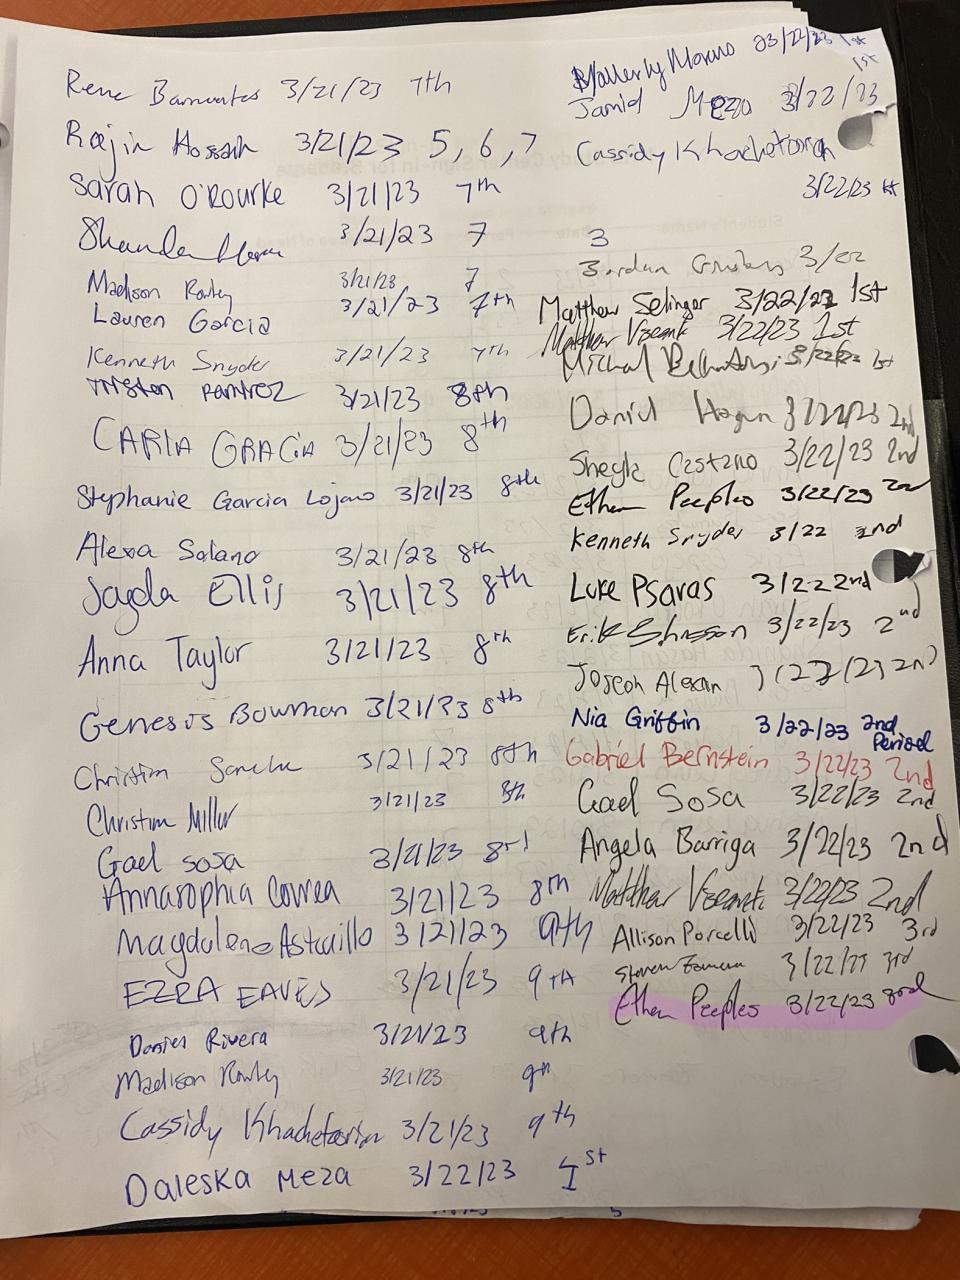 Rene Barrientos 3/21/23 7th
Rajin Hossain 3/21/23 5, 6, 7
Sarah O'Rourke 3/21/23 7th
3/21/23 7
Madison Rowley 3/21/23 7
Lauren Garcia 3/21/23 7th
Kenneth Snyder 3/21/23 7th
Tristen Ramirez 3/21/23 8th
CARLA GRACIA 3/21/23 8th
Stephanie Garcia Lojano 3/21/23 8th
Alexa Solano 3/21/23 8th
Jayda Ellis 3/21/23 8th
Anna Taylor 3/21/23 8th
Genesis Bowman 3/21/23 8th
Christian 3/21/23 8th
Christian Miller 3/21/23 8th
Gael Sosa 3/21/23 8rd
Annasophia Correa 3/21/23 8th
Magdaleno Astudillo 3/21/23 9th
EZRA EAVES 3/21/23 9th
Daniel Rivera 3/21/23 9th
Madison Rowley 3/21/23 9th
Cassidy Khachatoorian 3/21/23 9th
Daleska Meza 3/22/23 1st
03/22/23 1st
Jamid Meza 3/22/23 1st
Cassidy Khachatoorian
3/22/23 1st
3
Jordan 3/22
Matthew Selinger 3/22/23 1st
Matthew 3/22/23 1st
Michal 3/22/23 1st
Daniel Hogan 3/22/23 2nd
Sheyla Castano 3/22/23 2nd
Ethan Peeples 3/22/23 2nd
Kenneth Snyder 3/22 2nd
Luke Psaras 3/22 2nd
Erik 3/22/23 2nd
Joseph 3/22/23 2nd
Nia Griffin 3/22/23 2nd Period
Gabriel Bernstein 3/22/23 2nd
Gael Sosa 3/22/23 2nd
Angela Barriga 3/22/23 2nd
Matthew 3/22/23 2nd
Allison Porcelli 3/22/23 3rd
Steven Zamora 3/22/23 3rd
Ethan Peeples 3/22/23 3rd